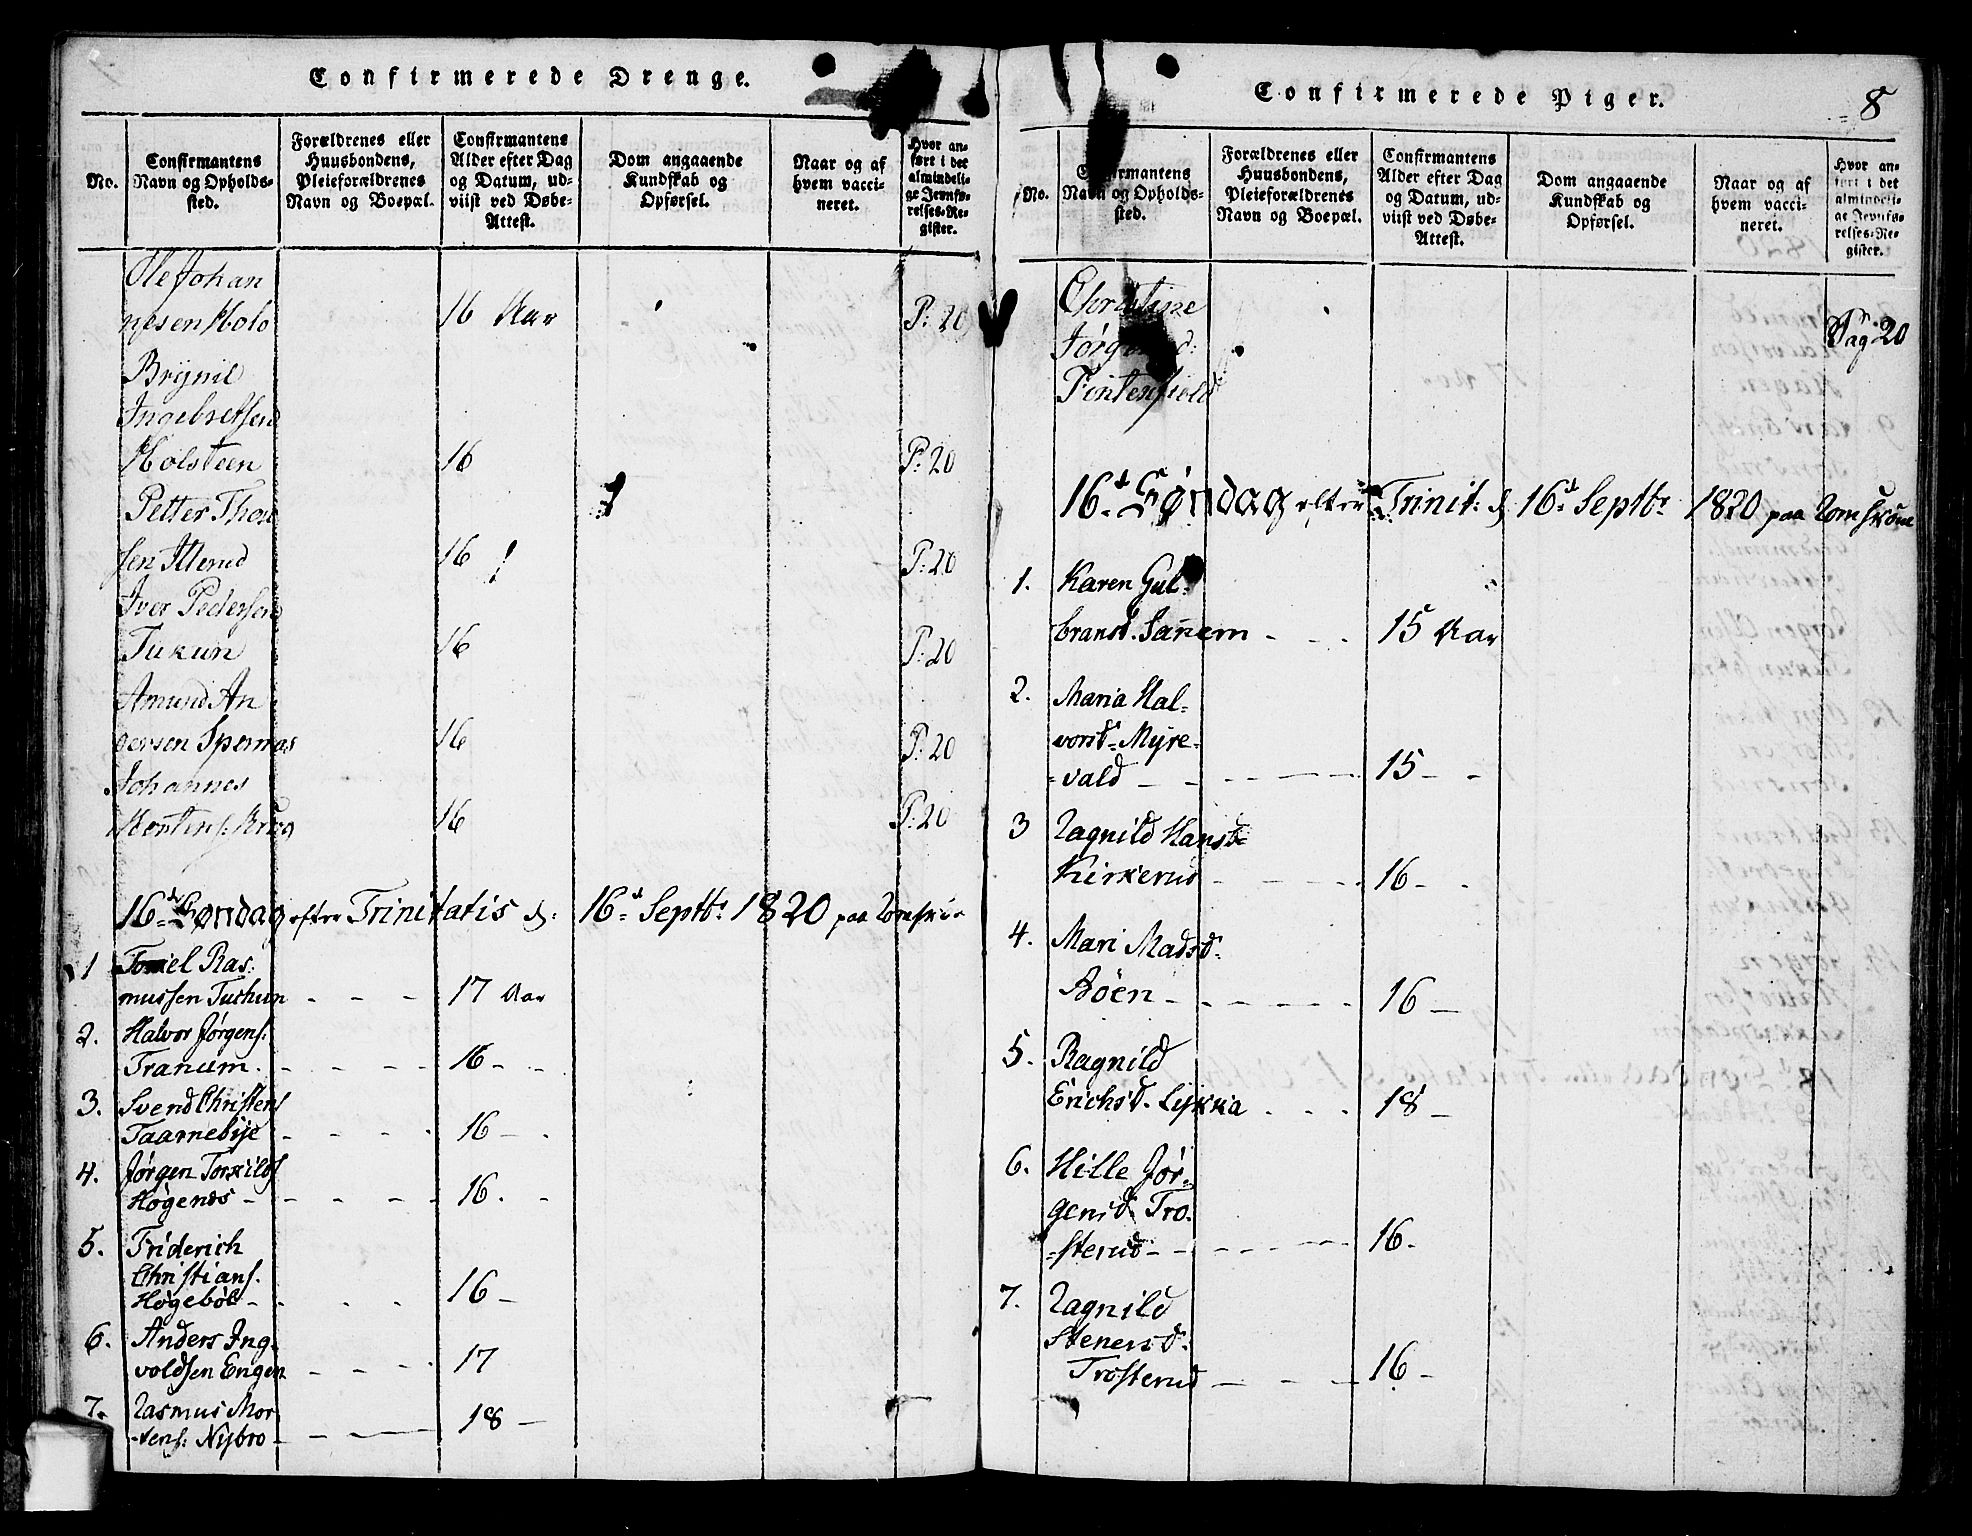 Confirmerede Drenge.
No.
Confirmantens Navn og Opholds-
sted.
Forældrenes eller
Huusbondens,
Pleieforældrenes
Navn og Boepæl.
Confirmantens
Alder efter Dag
og Datum, ud-
viist ved Døbe-
Attest.
Dom angaaende
Kundskab og
Opførsel.
Naar og af
hvem vacci-
neret.
Hvor an-
ført i det
almindeli-
ge Jevnfø-
relses-Re-
gister.
Ole Johan
nesen Holo 16 Aar P: 20
Brynil
Ingebretsen
Holsteen 16 P: 20
Petter Thor
sen Itterud 16 P: 20
Iver Pedersen
Tukun 16 P: 20
Amund An
dersen Spernas 16 P: 20
Johannes
Mortens: Krog 16 P: 20
16d Søndag efter Trinitatis d: 16d Septbr 1820 paa
1 Tomel Ras:
mussen Tuchun - - - 17 Aar
2. Halvor Jørgens:
Tranum. - - - - 16 - -
3. Svend Christens
Taarnebye - - - - 16 - -
4. Jørgen Torkilds
Høgenes - - - - 16. -
5. Friderich
Christians.
Høgeböl - - - - 16 -
6. Anders Ing-
voldsen Engen - - - 17
7. Rasmus Mor
-tens: Nybro - - - 18 -
Confirmerede Piger.
8
No.
Confirmantens
Navn og Opholds-
sted.
Forældrenes eller
Huusbondens,
Pleieforældrenes
Navn og Boepæl.
Confirmantens
Alder efter Dag
og Datum, ud-
viist ved Døbe-
Attest.
Dom angaaende
Kundskab og
Opførsel.
Naar og af
hvem vacci-
neret.
Hvor an-
ført i det
almindeli-
ge Jevnfø-
relses-Re-
gister.
Christine
Pag: 20
16d Søndag efter Trinit: d 16d Septbr 1820 paa
1. Karen Gul-
bransd. Sanem - - - 15 Aar
2. Maria Hal-
vorsd- Myre-
-vald - - - - - 15 - -
3 Ragnild Hansd-
Kirkerud - - - - 16 - -
4. Mari Madsd-
Böen - - - - - 16 -
5. Ragnild
Erichsd. Lykka - - - 18 -
6. Hille Jør-
gensd. Tro-
-sterud - - - - - 16 -
7. Ragnild
Stenersd:
Trosterud - - - - 16 -